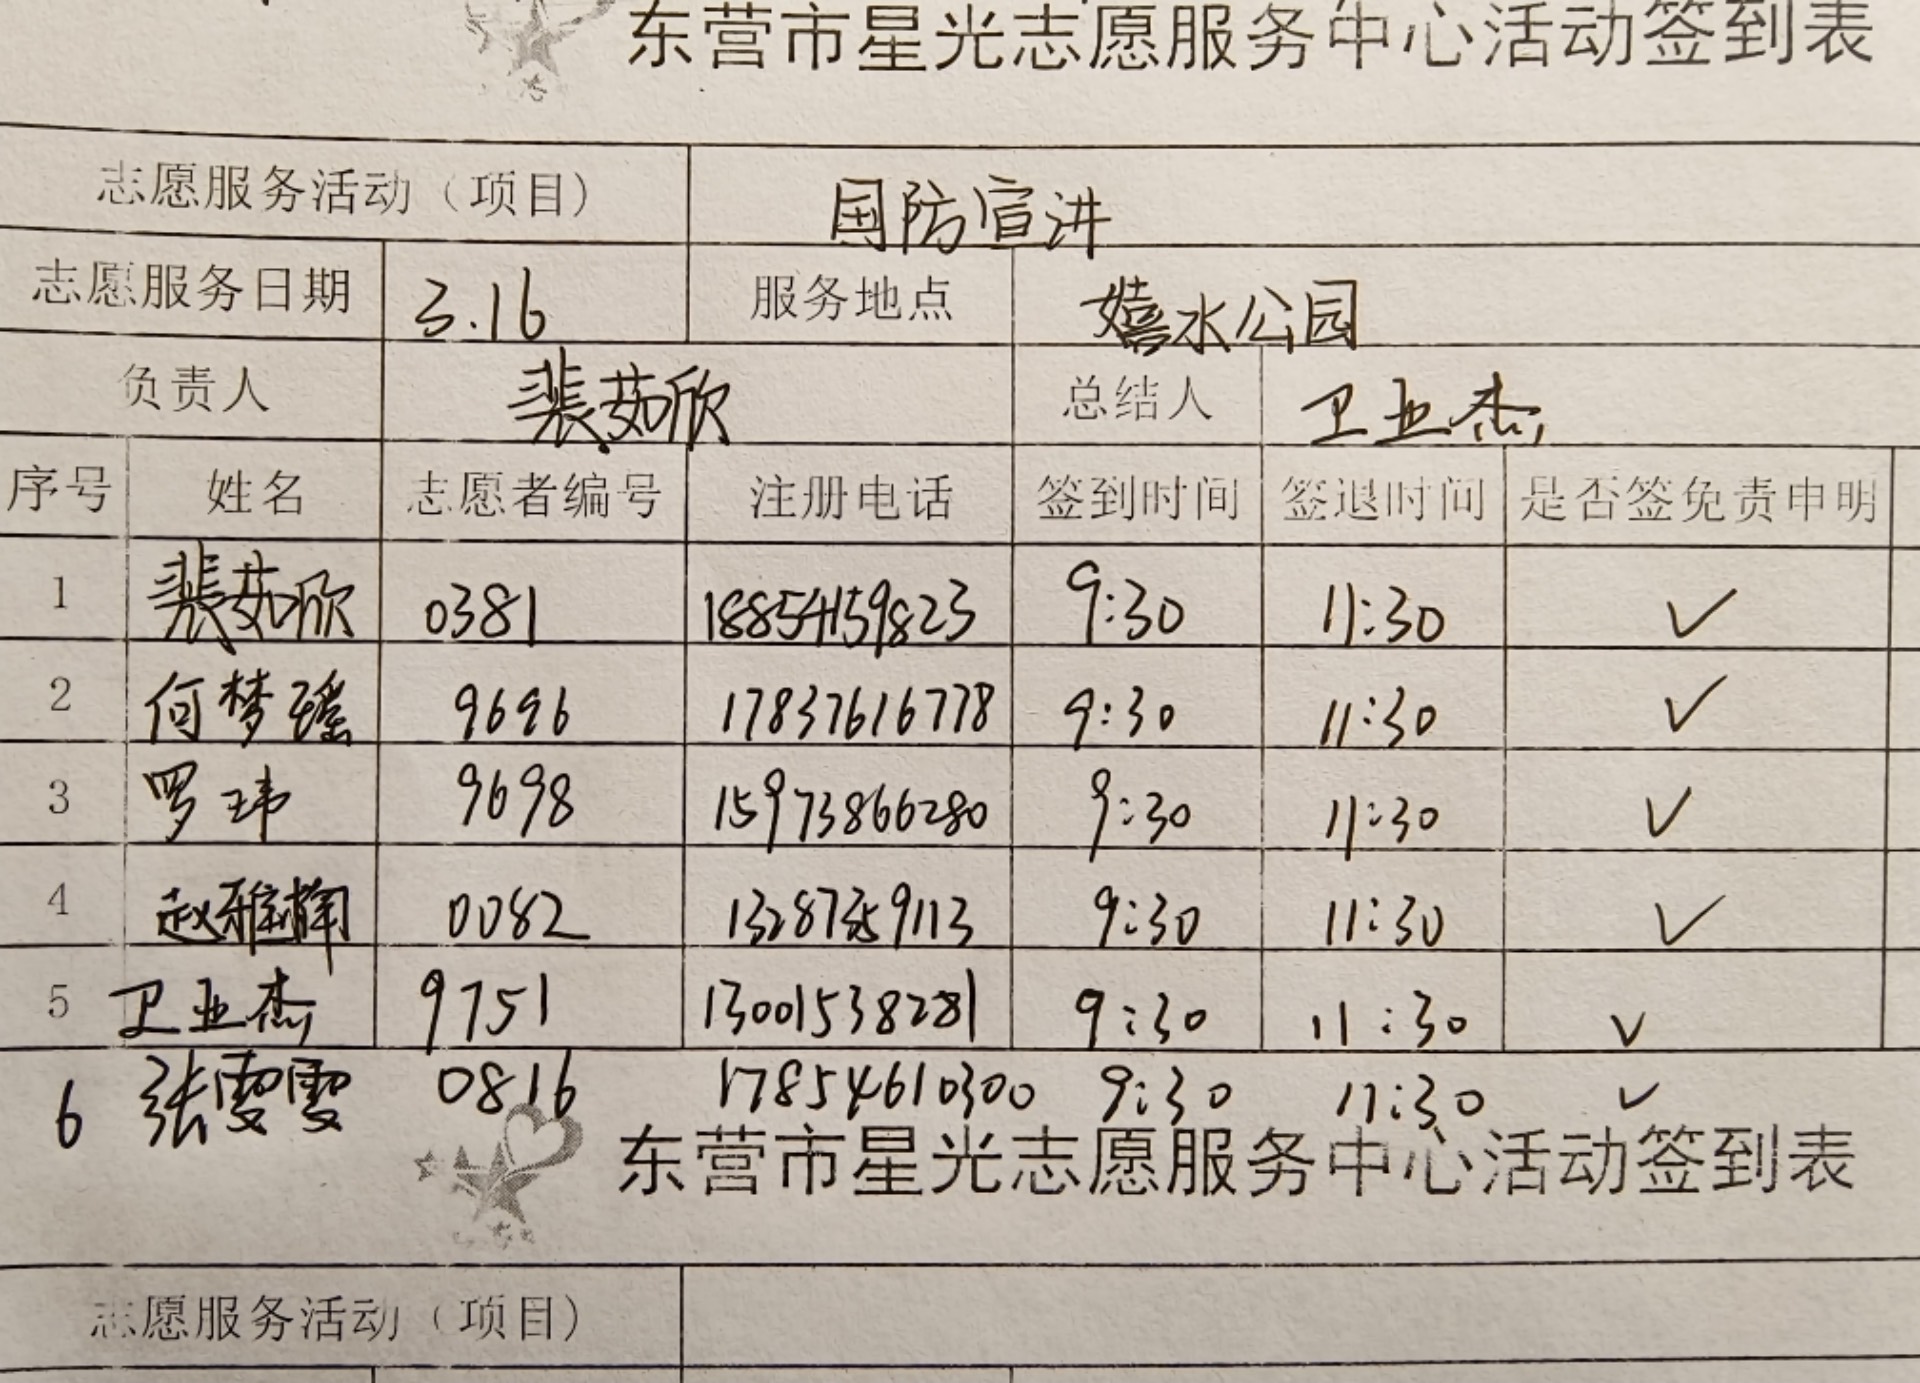 东营市星光志愿服务中心活动签到表
志愿服务活动（项目） 国防宣讲
志愿服务日期 3.16 服务地点 嬉水公园
负责人 裴茹欣 总结人 卫亚杰
序号 姓名 志愿者编号 注册电话 签到时间 签退时间 是否签免责申明
1 裴茹欣 0381 18854159823 9:30 11:30 ✓
2 何梦瑶 9696 17837616778 9:30 11:30 ✓
3 罗玮 9698 15973866280 9:30 11:30 ✓
4 赵雅 0082 9:30 11:30 ✓
5 卫亚杰 9751 13001538281 9:30 11:30 ✓
6 张雯雯 0816 17854610300 9:30 11:30 ✓
东营市星光志愿服务中心活动签到表
志愿服务活动（项目）